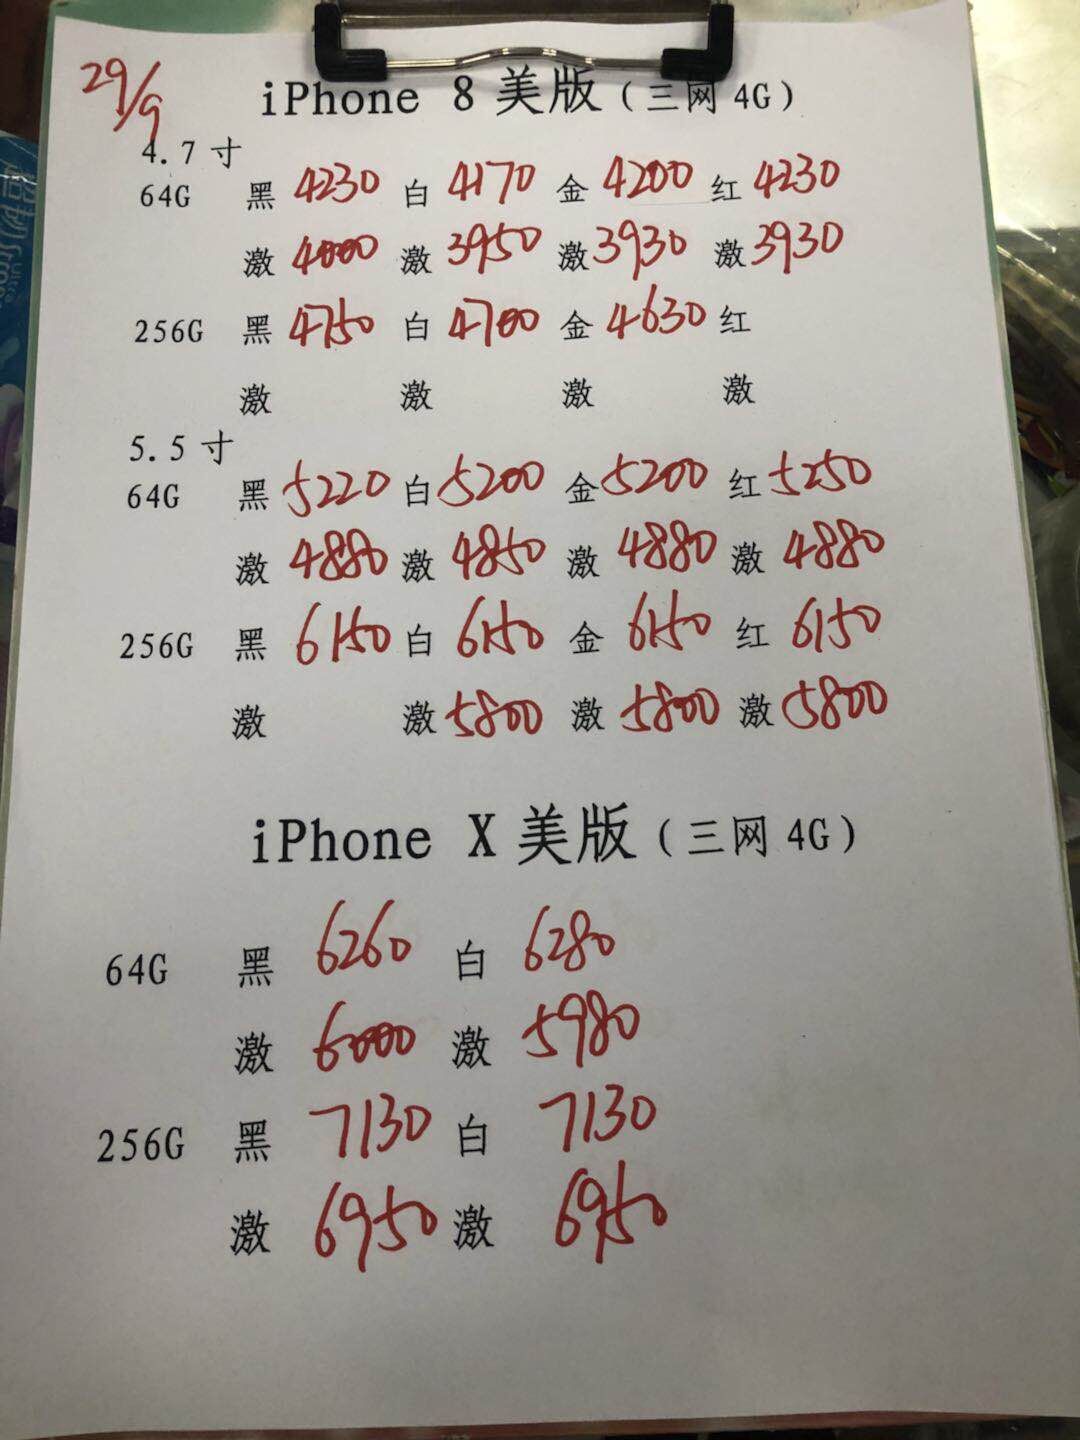 29/9
iPhone 8 美版 (三网 4G)
4.7 寸
64G 黑 4230 白 4170 金 4200 红 4230
激 4000 激 3950 激 3930 激 3930
256G 黑 4750 白 4700 金 4630 红
激 激 激 激
5.5 寸
64G 黑 5220 白 5200 金 5200 红 5250
激 4880 激 4850 激 4880 激 4880
256G 黑 6150 白 6150 金 6150 红 6150
激 激 5800 激 5800 激 5800
iPhone X 美版 (三网 4G)
64G 黑 6260 白 6280
激 6000 激 5980
256G 黑 7130 白 7130
激 6950 激 6950